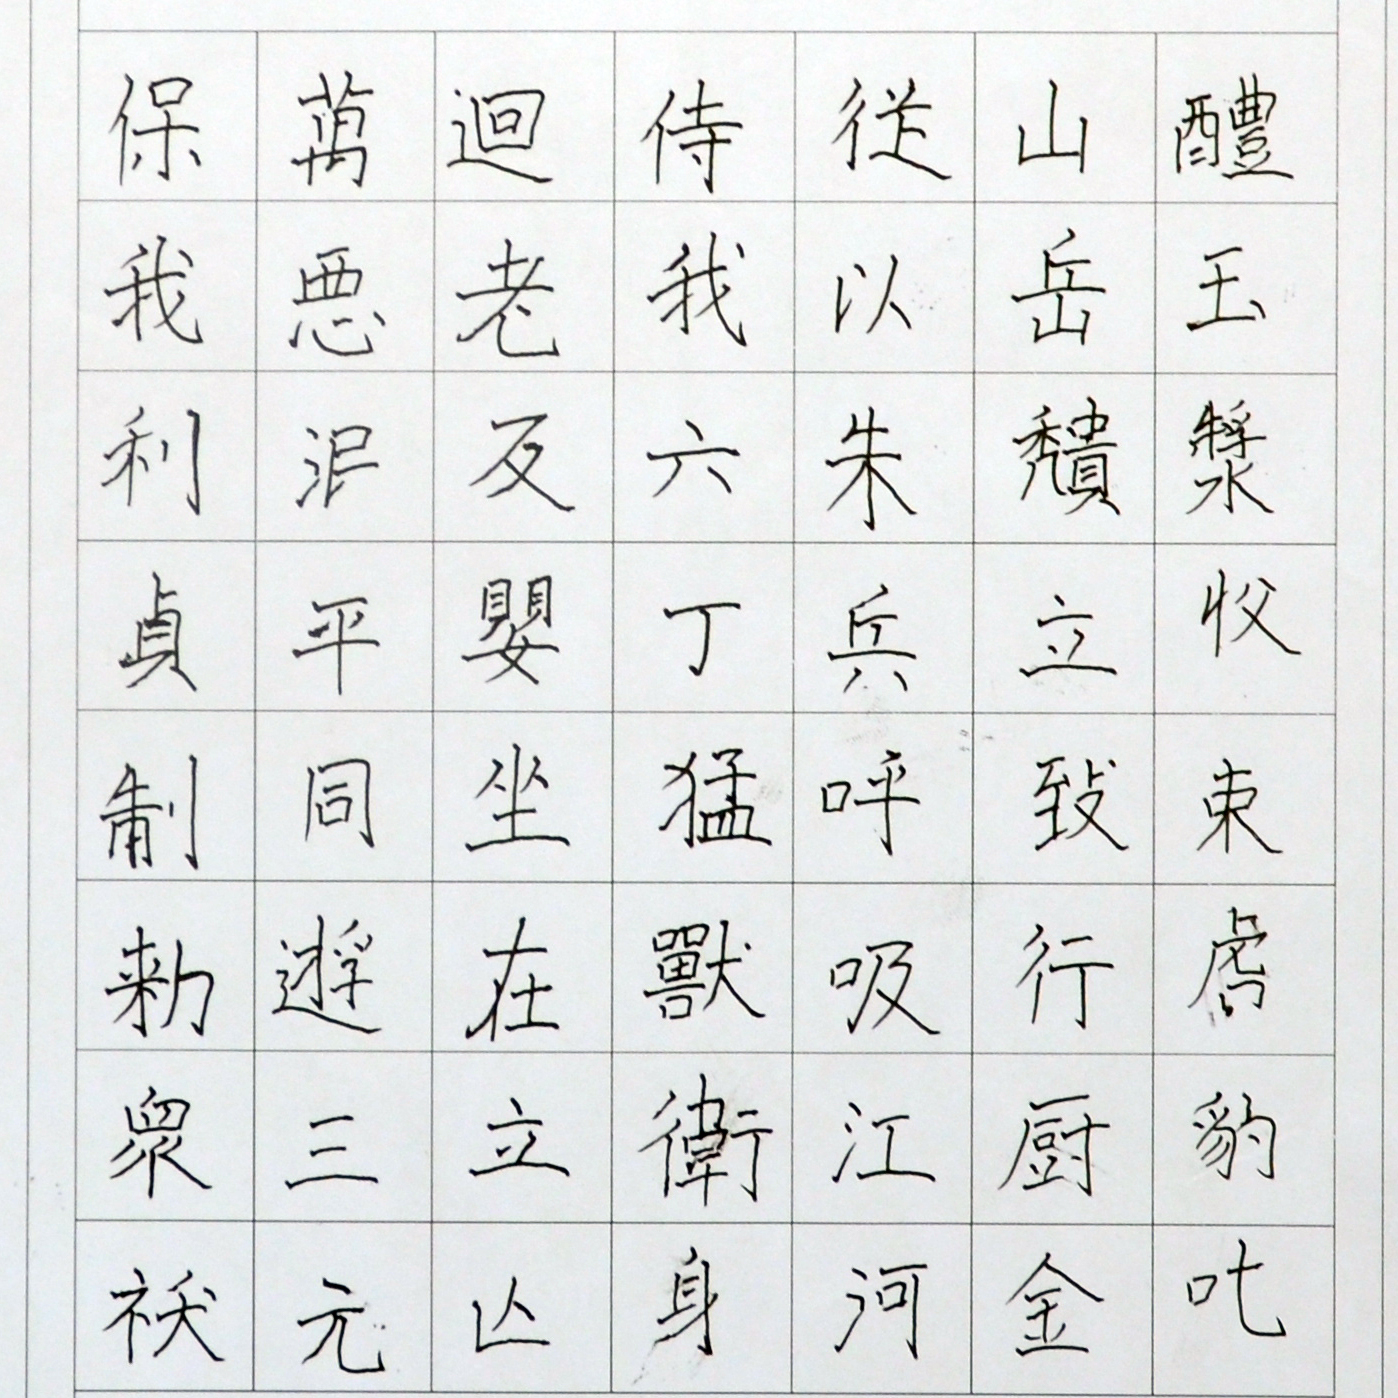 醴玉漿收束虐豹叱
山岳穨立致行厨金
從以朱兵呼吸江河
侍我六丁猛獸衛身
迴老反嬰坐在立亾
萬惡泯平同遊三元
保我利貞制勑眾祆